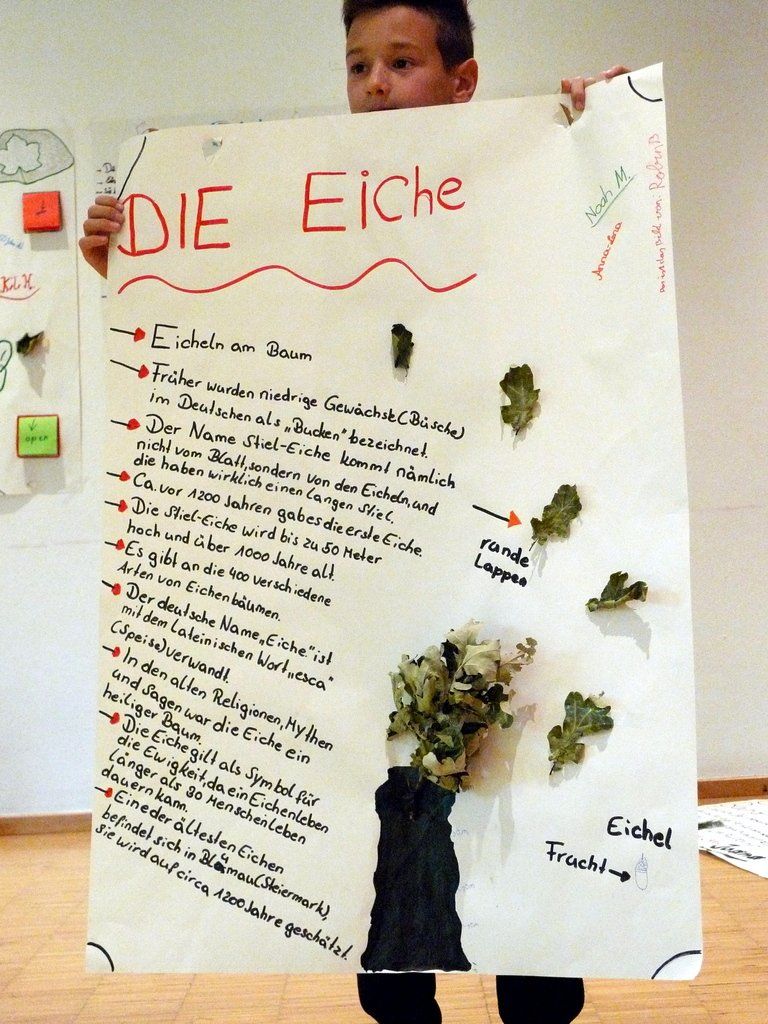 DIE EiChe
Noah M.
Anna-Lena
Eicheln am Baum
Früher wurden niedrige Gewächse (Büsche)
im Deutschen als „Bucken" bezeichnet.
Der Name Stiel-Eiche kommt nämlich
nicht vom Blatt, sondern von den Eicheln, und
die haben wirklich einen langen Stiel.
Ca. vor 1200 Jahren gab es die erste Eiche.
Die Stiel-Eiche wird bis zu 50 Meter
hoch und über 1000 Jahre alt.
Es gibt an die 400 verschiedene
Arten von Eichenbäumen.
Der deutsche Name „Eiche" ist
mit dem Lateinischen Wort „esca"
(Speise) verwandt.
In den alten Religionen, Mythen
und Sagen war die Eiche ein
heiliger Baum.
Die Eiche gilt als Symbol für
die Ewigkeit, da ein Eichenleben
länger als 30 Menschenleben
dauern kann.
Eine der ältesten Eichen
befindet sich in Blumau (Steiermark),
sie wird auf circa 1200 Jahre geschätzt.
runde
Lappen
Eichel
Frucht
open